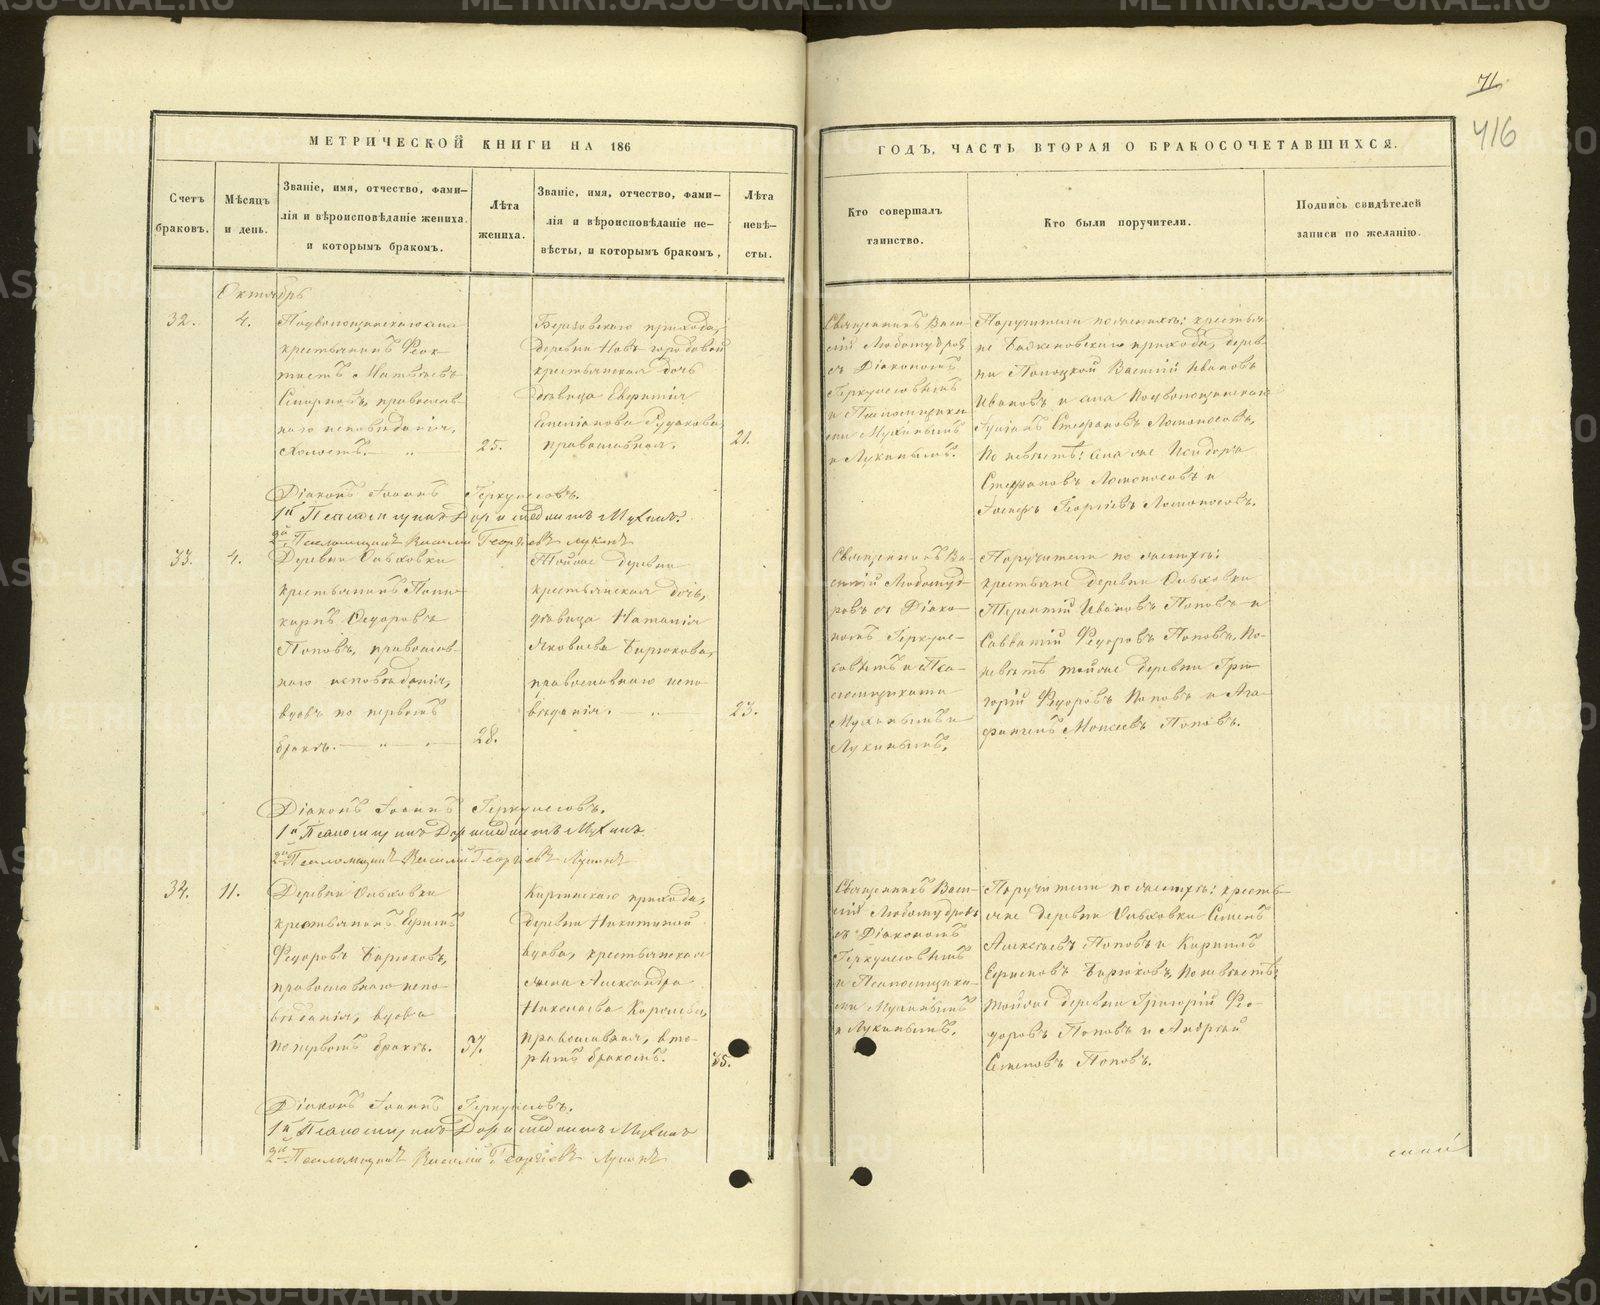 71
416
МЕТРИЧЕСКОЙ КНИГИ НА 186
ГОДЪ, ЧАСТЬ ВТОРАЯ О БРАКОСОЧЕТАВШИХСЯ.
Счетъ
браковъ.
Мѣсяцъ
и день.
Званіе, имя, отчество, фами-
лія и вѣроисповѣданіе жениха.
и которымъ бракомъ.
Лѣта
жениха.
Званіе, имя, отчество, фами-
лія и вѣроисповѣданіе не-
вѣсты, и которымъ бракомъ,
Лѣта
невѣ-
сты.
Кто совершалъ
таинство.
Кто были поручители.
Подпись свидѣтелей
записи по желанію.
Октябрь
32.
4.
крестьянинъ Ѳеок-
тистъ Матвѣевъ
Смирновъ, православ-
наго исповѣданія,
холостъ.
25.
прихода,
деревни
крестьянская дочь
дѣвица Евфимія
Емеліанова Рудакова,
православная.
21.
Священникъ Васи-
лій Любомудровъ
съ Діакономъ
Геркулесовымъ
и Псаломщика-
ми Мухинымъ
и Лукинымъ.
Поручители по женихѣ: крестья-
не прихода, дерев-
ни Василій Ивановъ
Ивановъ и села
Стефановъ Ломоносовъ,
По невѣстѣ: села же Исидоръ
Стефановъ Ломоносовъ и
Іосифъ Георгіевъ Ломоносовъ.
Діаконъ Іоаннъ Геркулесовъ.
1й Псаломщикъ Доримедонтъ Мухинъ.
2й Псаломщикъ Василій Георгіевъ Лукинъ
33.
4.
Деревни Ольховки
крестьянинъ Поли-
карпъ Ѳедоровъ
Поповъ, православ-
наго исповѣданія,
вдовъ по первомъ
бракѣ.
28.
Тойже деревни
крестьянская дочь,
дѣвица Наталія
Яковлева Бирюкова,
православнаго испо-
вѣданія.
23.
Священникъ Ва-
силій Любомуд-
ровъ съ Діако-
номъ Геркуле-
совымъ и Пса-
ломщиками
Мухинымъ и
Лукинымъ.
Поручители по женихѣ:
крестьяне деревни Ольховки
Терентій Ивановъ Поповъ и
Савватій Ѳедоровъ Поповъ, По
невѣстѣ тойже деревни Гри-
горій Ѳедоровъ Поповъ и Ага-
фангелъ Моисеевъ Поповъ.
Діаконъ Іоаннъ Геркулесовъ.
1й Псаломщикъ Доримедонтъ Мухинъ
2й Псаломщикъ Василій Георгіевъ Лукинъ
34.
11.
Деревни Ольховки
крестьянинъ Ефимъ
Ѳедоровъ Бирюковъ,
православнаго испо-
вѣданія, вдовъ
по первомъ бракѣ.
37.
прихода,
деревни Никитиной
вдова, крестьянская
жена Александра
Николаева Королева,
православная, вто-
рымъ бракомъ.
35.
Священникъ Васи-
лій Любомудровъ
съ Діакономъ
Геркулесовымъ
и Псаломщика-
ми Мухинымъ
и Лукинымъ.
Поручители по женихѣ: кресть-
яне деревни Ольховки Семенъ
Алексѣевъ Поповъ и Кириллъ
Ефимовъ Бирюковъ, По невѣстѣ
тойже деревни Григорій Ѳе-
доровъ Поповъ и Андрей
Семеновъ Поповъ.
Діаконъ Іоаннъ Геркулесовъ.
1й Псаломщикъ Доримедонтъ Мухинъ
2й Псаломщикъ Василій Георгіевъ Лукинъ
METRIKI.GASO-URAL.RU